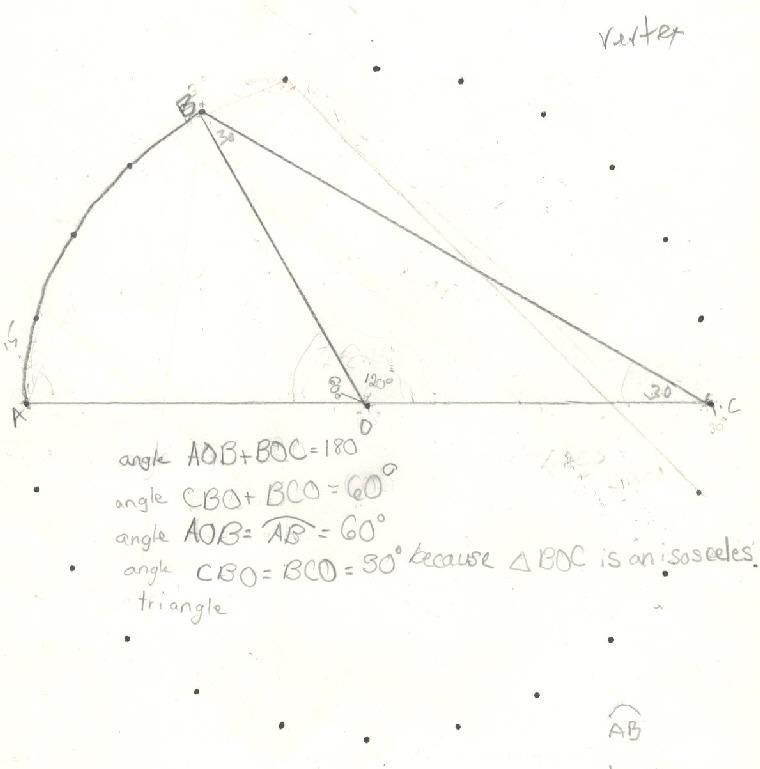 vertex
B
30
120°
30
C
A
O
30°
angle AOB+BOC=180
angle CBO+BCO=60°
angle AOB=AB=60°
angle CBO=BCO=30° because △BOC is an isosceles
triangle
AB